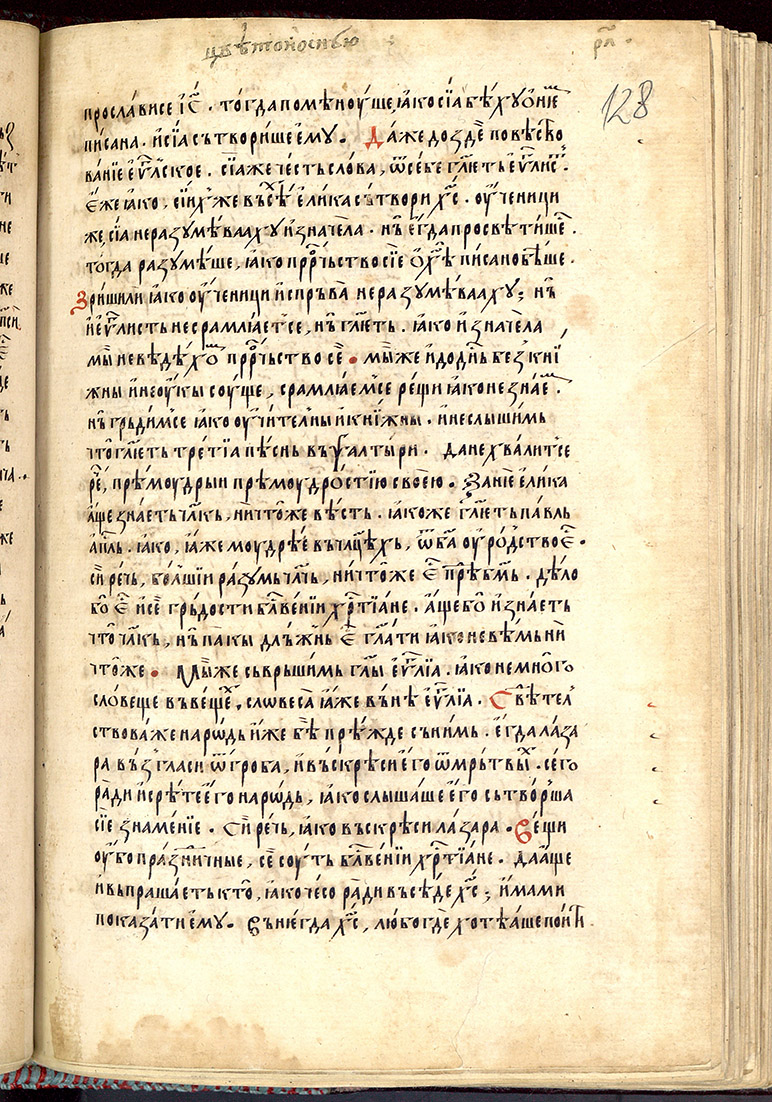 цвѣтоноснью рл
128
прослависе і҃с . тогда помѣноуше, ꙗко сїа бѣху ѡ нѥⷨ
писана . и сїа сътворише ѥму . Даже до здѣ повѣсⷮво
ванїе еѵⷢ҇лское . сїа же честь слова , ѿ себе гл҃еть еѵⷢ҇лисⷮ .
еже ꙗко , сїиⷯ же въсⷯѣ елика сътвори хⷭ҇ . оученици
же, сїа не разумѣвааху изначела . нь егда просвѣтишеⷭ .
тогда разумѣше , ꙗко прⷪ҇рчьство сїе ѡ хⷭ҇ѣ писано бѣше .
Зриши ли ꙗко оученици испръва не разумѣвааху ; нь
и еѵⷢ҇листь не срамлꙗетсе , нь гл҃еть . ꙗко изначела
мы не вѣдѣхоⷨ прⷪ҇рчьство се . мы же и до днⷭ҇ь без кни
жны и нгоукы соуще , срамлꙗемсе рещи ꙗко не знаеⷨ .
нь грьдимсе ꙗко оучителны и книжны . и не слышимь
что гл҃еть третїа пѣснь въ ѱалтыри . да не хвалитсе
реⷱ , прѣмоудрыи прѣмоудростїю своею . Занѥ елика
аще знаеть чл҃кь , ничтоже вѣсть . ꙗкоже гл҃еть павль
ап҃ль . ꙗко , ꙗже моудрѣе въ чл҃цѣхь , ѿ б҃а оуродство еⷭ .
си речь , болшїи разумь чл҃чь , ничтоже еⷭ прѣⷣ б҃мь . дѣло
бо еⷭ и се грьдости бл҃вени хрⷭ҇тїане . аще бо и знаеть
что чл҃кь , нь пакы длъжнь еⷭ гл҃ати ꙗко не вѣмь ни
чтоже . Мы же съврьшимь гл҃ы еѵⷢ҇лїа . ꙗко не много
словеще въ вещеⷯ , словеса ꙗже вънѣ еѵⷢ҇лїа . Свѣтел
ствоваже народь иже бѣ прѣжде съ нимь . егда лаза
ра възгласи ѿ гроба , и въскрѣси его ѿ мрътвыⷯ . сего
ради и срѣте его народь , ꙗко слышаше его сътворша
сїе знаменїе . Си речь , ꙗко въскрѣси лазара . Вещи
оубо празⷣничные , се соуть бл҃вени хрⷭ҇тїане . да аще
и въпрашаеть кто , ꙗко чесо ради въсѣде хⷭ҇ ; имами
показати ему . Вънѥгда хⷭ҇ , любо где хотѣаше поити